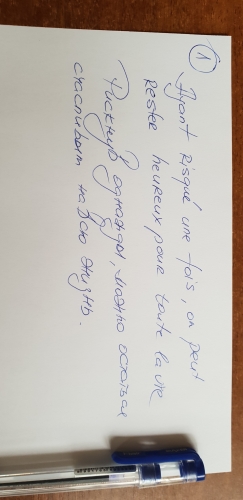 1
Ayant risqué une fois, on peut
rester heureux pour toute la vie
Рискнув однажды, можно остаться
счастливым на всю жизнь.